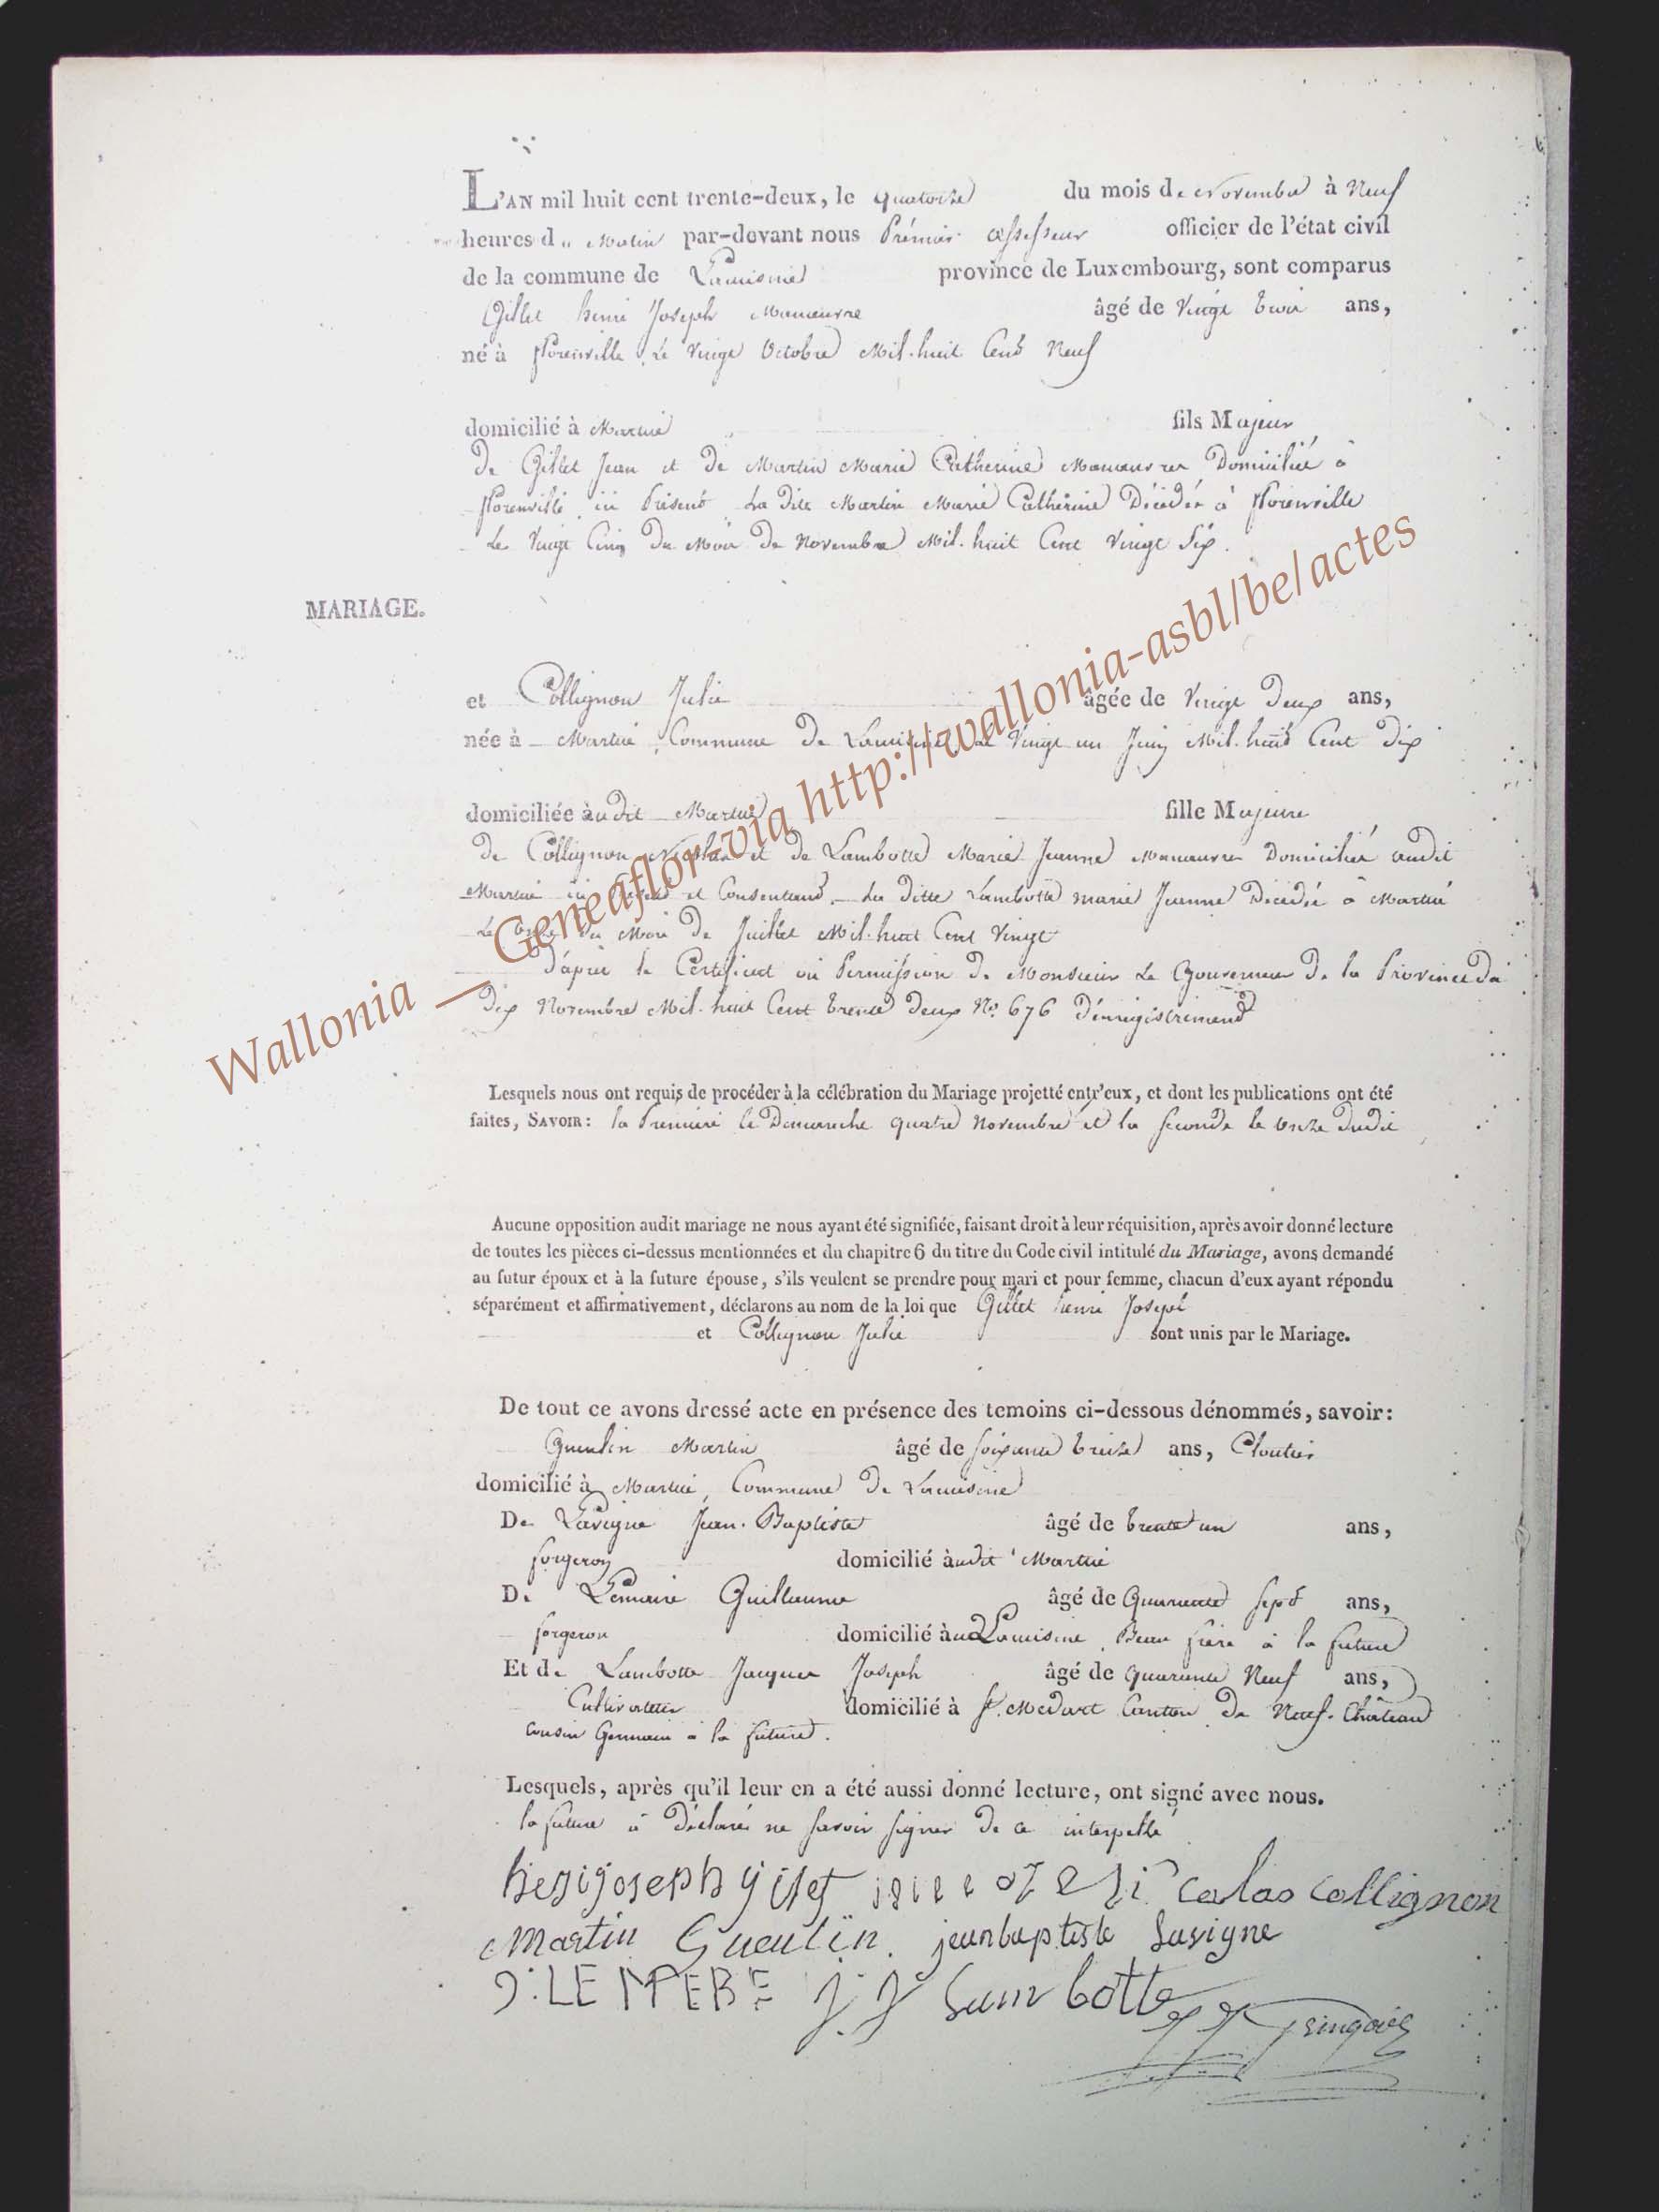 L'AN mil huit cent trente-deux, le quatorze du mois de Novembre à Neuf
heures du Matin par-devant nous Prémier assesseur officier de l'état civil
de la commune de Lacuisine province de Luxembourg, sont comparus
Gillet henri Joseph Manœuvre âgé de Vingt trois ans,
né à florenville, Le Vingt Octobre Mil-huit Cent Neuf
domicilié à Martué fils Majeur
De Gillet Jean et De Martin Marie Catherine Manœuvres Domiciliés à
florenville ici Présent La dite Martin Marie Catherine Décédée à florenville
Le Vingt Cinq Du Mois De Novembre Mil-huit Cent Vingt Six.
MARIAGE.
et Collignon Julie âgée de Vingt Deux ans,
née à Martué, Commune De Lacuisine Le Vingt un Juin Mil-huit Cent Dix
domiciliée audit Martué fille Majeure
De Collignon Nicolas et de Lambotte Marie Jeanne Manœuvres Domiciliés audit
Martué ici et Consentant, La Ditte Lambotte marie Jeanne Décédée à Martué
Le du Mois De Juillet Mil-huit Cent Vingt
D'après le Certificat ou Permission De Monsieur Le Gouverneur De la Province Du
Dix Novembre Mil-huit Cent trente Deux No. 676 D'enregistrement
Lesquels nous ont requis de procéder à la célébration du Mariage projetté entr'eux, et dont les publications ont été
faites, SAVOIR: la Première le Dimanche quatre Novembre et la Seconde le onze Dudit
Aucune opposition audit mariage ne nous ayant été signifiée, faisant droit à leur réquisition, après avoir donné lecture
de toutes les pièces ci-dessus mentionnées et du chapitre 6 du titre du Code civil intitulé du Mariage, avons demandé
au futur époux et à la future épouse, s'ils veulent se prendre pour mari et pour femme, chacun d'eux ayant répondu
séparément et affirmativement, déclarons au nom de la loi que Gillet henri Joseph
et Collignon Julie sont unis par le Mariage.
De tout ce avons dressé acte en présence des temoins ci-dessous dénommés, savoir:
Gueulin Martin âgé de soixante treize ans, Cloutier
domicilié à Martué, Commune De Lacuisine
De Lavigne Jean-Baptiste âgé de trente un ans,
forgeron domicilié audit Martué
De Lemaire Guillaume âgé de Quarante sept ans,
forgeron domicilié Lacuisine, Beau frère à la future
Et de Lambotte Jacques Joseph âgé de quarante Neuf ans,
Cultivateur domicilié à St. Medart Canton De Neuf-Château
cousin Germain à la future.
Lesquels, après qu'il leur en a été aussi donné lecture, ont signé avec nous.
la future à Déclaré ne savoir signer De ce interpellé
henijoseph gilet colas collignon
Martin Gueulin. jeanbaptiste Lavigne
J. J Lambotte
Wallonia __ Geneaflor via http://wallonia-asbl/be/actes